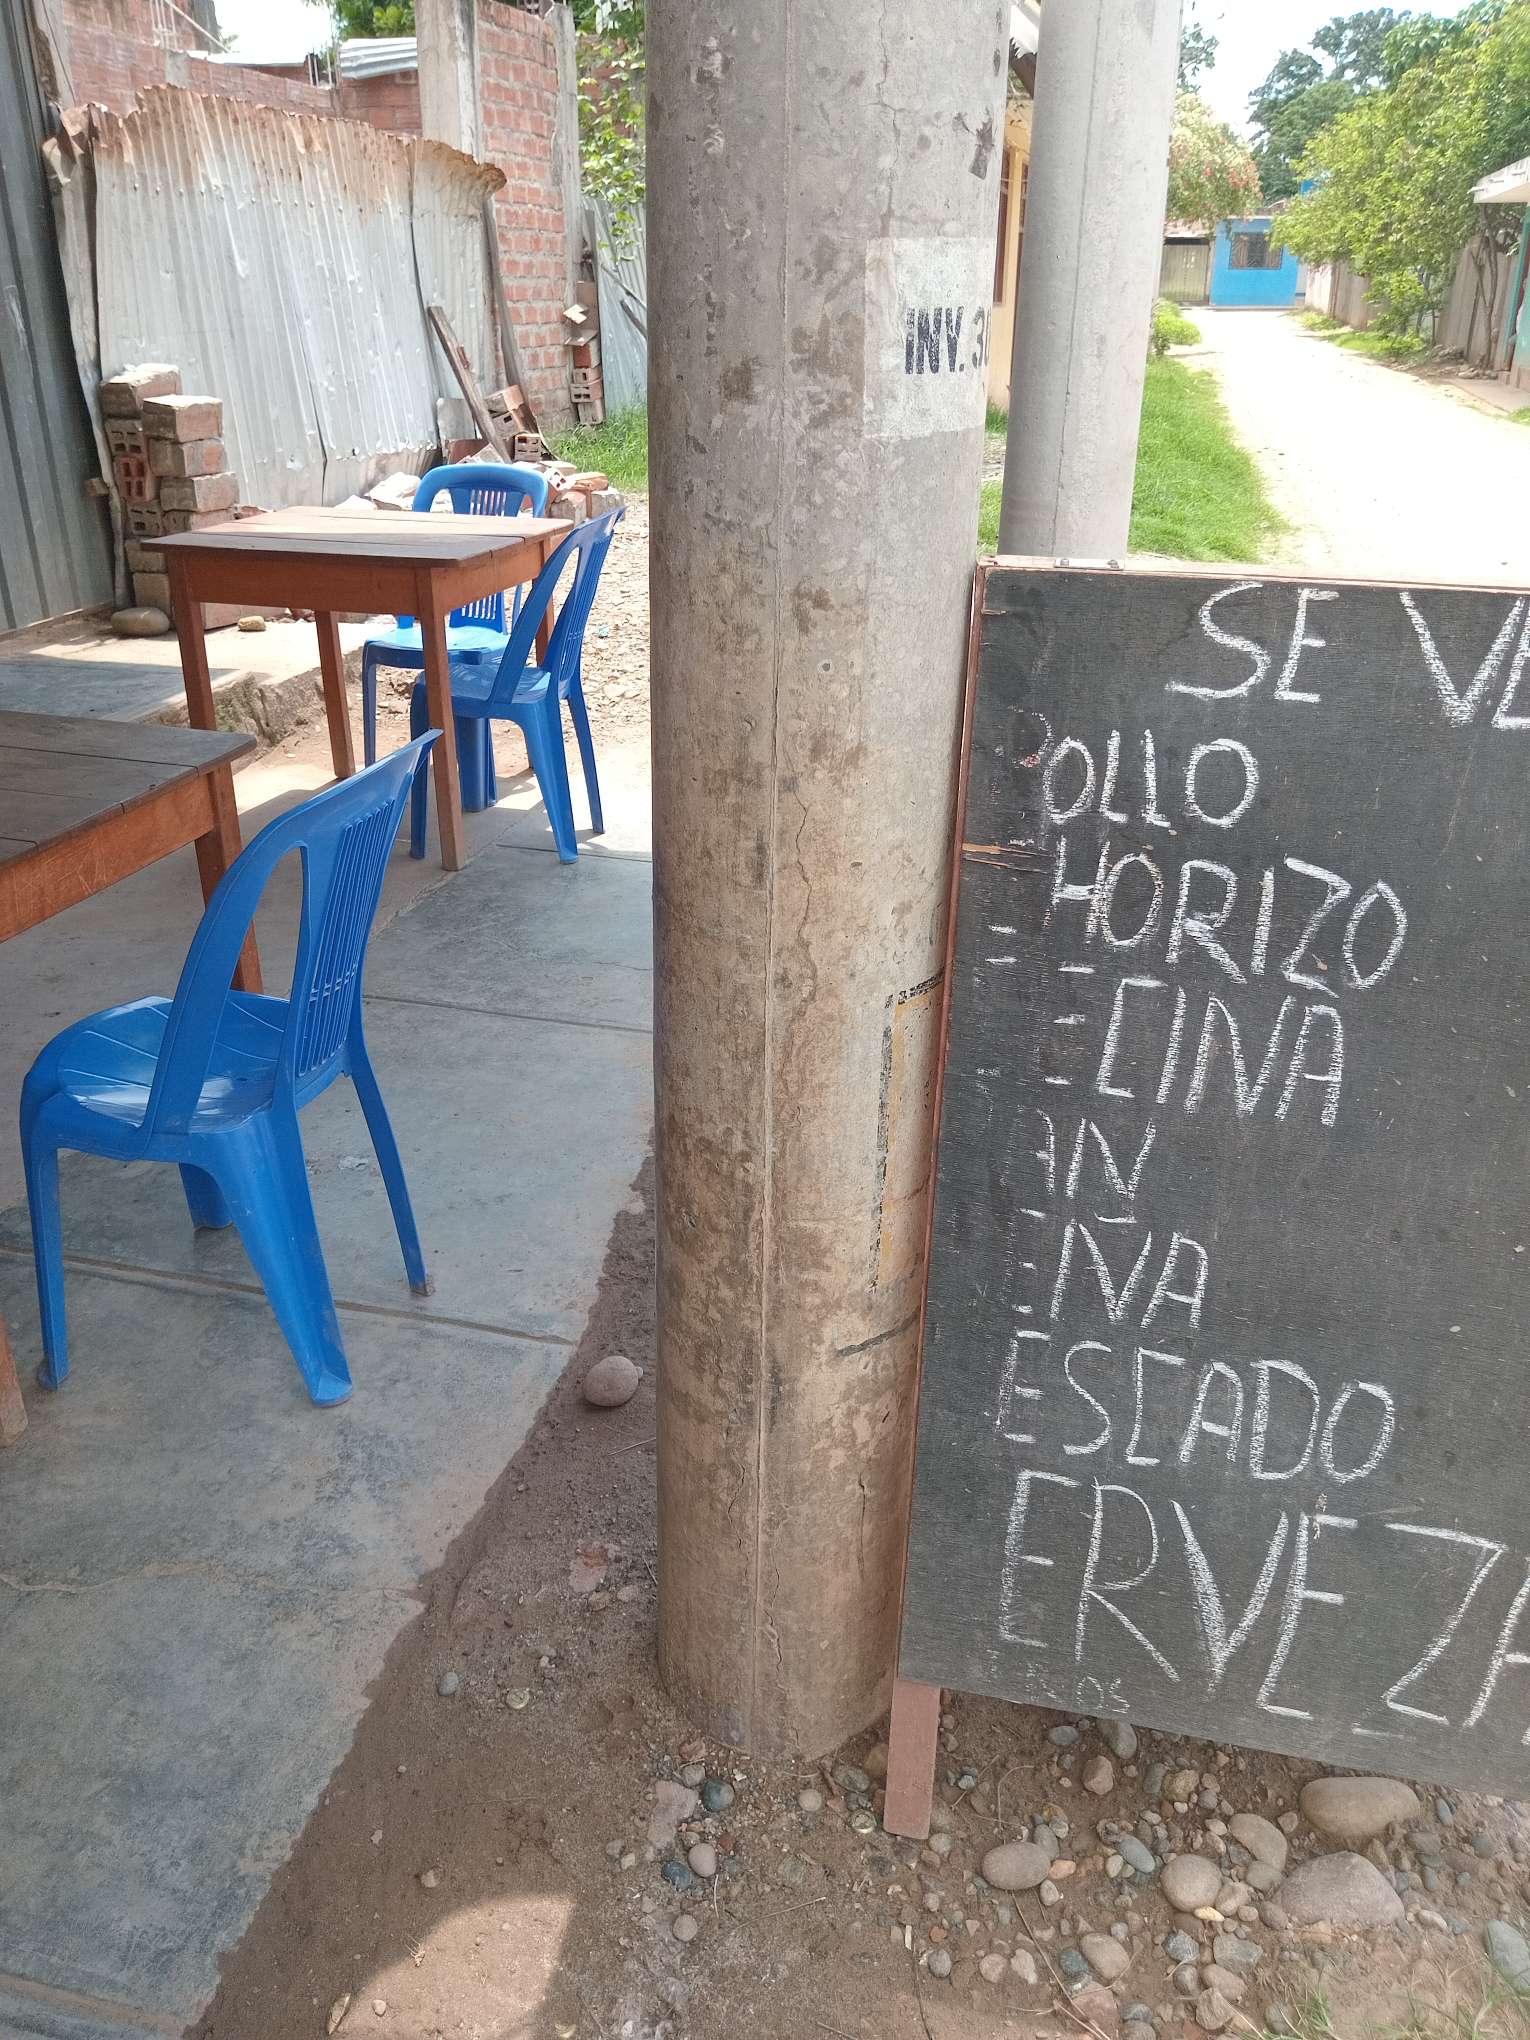 INV. 30
SE VE
POLLO
HORIZO
ECINA
AN
EÑA
ESCADO
ERVEZA